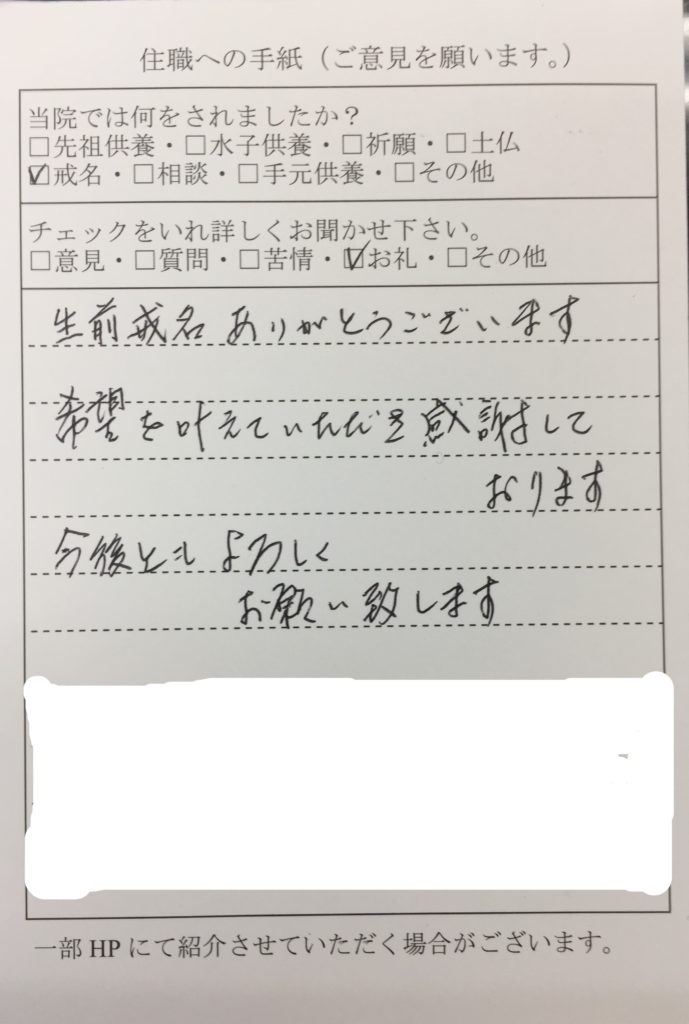 住職への手紙（ご意見を願います。）
当院では何をされましたか？
□先祖供養・□水子供養・□祈願・□土仏
☑戒名・□相談・□手元供養・□その他
チェックをいれ詳しくお聞かせ下さい。
□意見・□質問・□苦情・☑お礼・□その他
生前戒名ありがとうございます
希望を叶えていただき感謝して
おります
今後ともよろしく
お願い致します
一部HPにて紹介させていただく場合がございます。